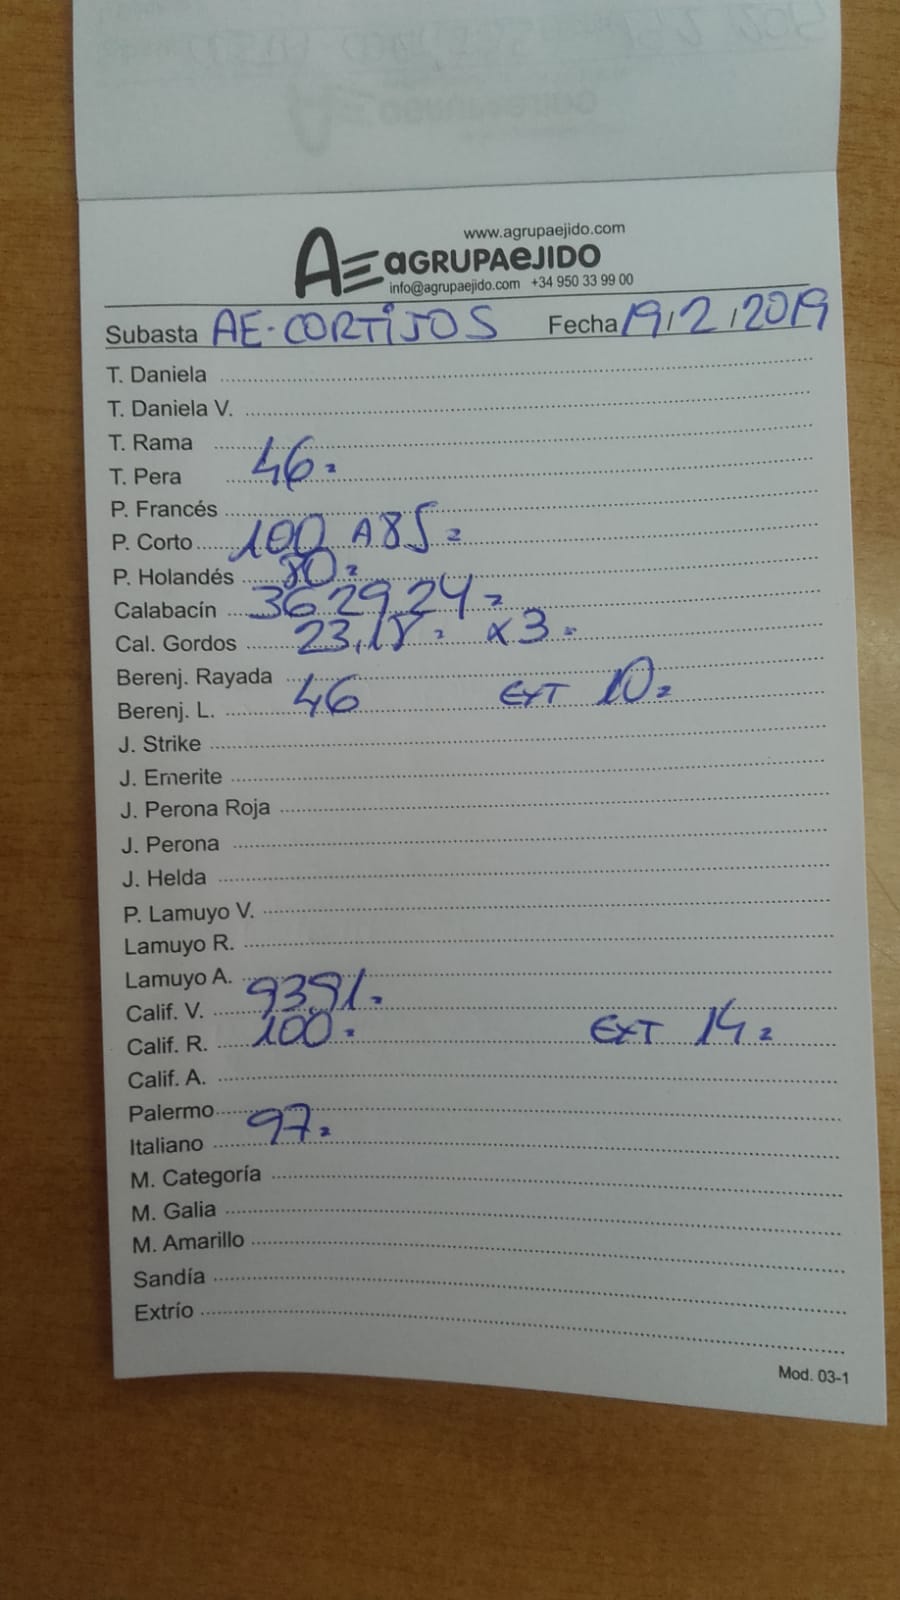 www.agrupaejido.com
AE AGRUPAEJIDO
info@agrupaejido.com +34 950 33 99 00
Subasta AE-CORTIJOS Fecha 19/2/2019
T. Daniela
T. Daniela V.
T. Rama
T. Pera 46=
P. Francés
P. Corto 100 A 85=
P. Holandés 80=
Calabacín 36 29,24=
Cal. Gordos 23,18= x3=
Berenj. Rayada
Berenj. L. 46 EXT 10=
J. Strike
J. Emerite
J. Perona Roja
J. Perona
J. Helda
P. Lamuyo V.
Lamuyo R.
Lamuyo A.
Calif. V. 93,91=
Calif. R. 100= EXT 14=
Calif. A.
Palermo
Italiano 97=
M. Categoría
M. Galia
M. Amarillo
Sandía
Extrío
Mod. 03-1